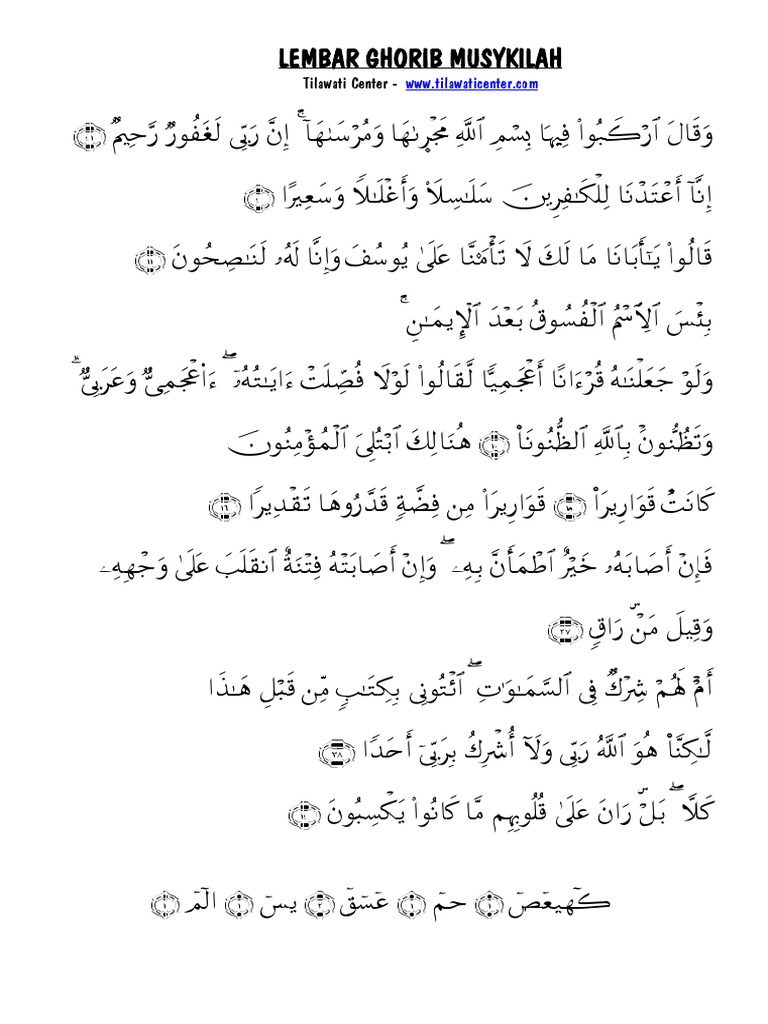 LEMBAR GHORIB MUSYKILAH
Tilawati Center - www.tilawaticenter.com
وَقَالَ ٱرْكَبُوا۟ فِيهَا بِسْمِ ٱللَّهِ مَجْر۪ىٰهَا وَمُرْسَىٰهَآ ۚ إِنَّ رَبِّى لَغَفُورٌ رَّحِيمٌ
إِنَّآ أَعْتَدْنَا لِلْكَـٰفِرِينَ سَلَـٰسِلَا۟ وَأَغْلَـٰلًا وَسَعِيرًا
قَالُوا۟ يَـٰٓأَبَانَا مَا لَكَ لَا تَأْمَ۫نَّا عَلَىٰ يُوسُفَ وَإِنَّا لَهُۥ لَنَـٰصِحُونَ ﴿١١﴾
بِئْسَ ٱلِٱسْمُ ٱلْفُسُوقُ بَعْدَ ٱلْإِيمَـٰنِ ۚ
وَلَوْ جَعَلْنَـٰهُ قُرْءَانًا أَعْجَمِيًّا لَّقَالُوا۟ لَوْلَا فُصِّلَتْ ءَايَـٰتُهُۥٓ ۖ ءَا۬عْجَمِىٌّ وَعَرَبِىٌّ ۗ
وَتَظُنُّونَ بِٱللَّهِ ٱلظُّنُونَا۠ ﴿١٠﴾ هُنَالِكَ ٱبْتُلِىَ ٱلْمُؤْمِنُونَ
كَانَتْ قَوَارِيرَا۠ ﴿١٥﴾ قَوَارِيرَا۟ مِن فِضَّةٍ قَدَّرُوهَا تَقْدِيرًا ﴿١٦﴾
فَإِنْ أَصَابَهُۥ خَيْرٌ ٱطْمَأَنَّ بِهِۦ ۖ وَإِنْ أَصَابَتْهُ فِتْنَةٌ ٱنقَلَبَ عَلَىٰ وَجْهِهِۦ
وَقِيلَ مَنْ ۜ رَاقٍ ﴿٢٧﴾
أَمْ لَهُمْ شِرْكٌ فِى ٱلسَّمَـٰوَٰتِ ۖ ٱئْتُونِى بِكِتَـٰبٍ مِّن قَبْلِ هَـٰذَا
لَّـٰكِنَّا۠ هُوَ ٱللَّهُ رَبِّى وَلَآ أُشْرِكُ بِرَبِّىٓ أَحَدًا ﴿٣٨﴾
كَلَّا ۖ بَلْ ۜ رَانَ عَلَىٰ قُلُوبِهِم مَّا كَانُوا۟ يَكْسِبُونَ
كٓهيعٓصٓ ﴿١﴾ حمٓ ﴿١﴾ عٓسٓقٓ ﴿٢﴾ يسٓ ﴿١﴾ الٓمٓ ﴿١﴾